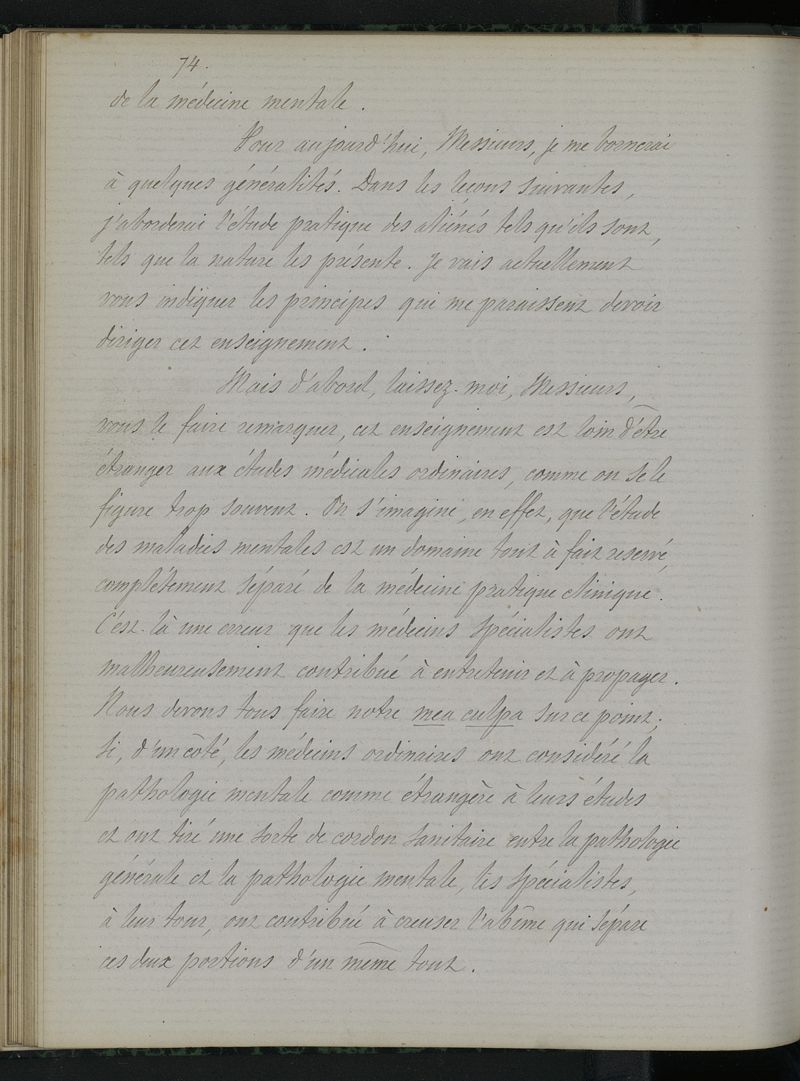 74.
de la médecine mentale.
Pour aujourd'hui, Messieurs, je me bornerai
à quelques généralités. Dans les leçons suivantes,
j'aborderai l'étude pratique des aliénés tels qu'ils sont,
tels que la nature les présente. Je vais actuellement
vous indiquer les principes qui me paraissent devoir
diriger cet enseignement.
Mais d'abord, laissez-moi, Messieurs,
vous le faire remarquer, cet enseignement est loin d'être
étranger aux études médicales ordinaires, comme on se le
figure trop souvent. On s'imagine, en effet, que l'étude
des maladies mentales est un domaine tout à fait reservé,
complétement séparé de la médecine pratique clinique.
C'est-là une erreur que les médecins spécialistes ont
malheureusement contribué à entretenir et à propager.
Nous devons tous faire notre mea culpa sur ce point;
si, d'un côté, les médecins ordinaires ont considéré la
pathologie mentale comme étrangère à leurs études
et ont tiré une sorte de cordon sanitaire entre la pathologie
générale et la pathologie mentale, les spécialistes,
à leur tour, ont contribué à creuser l'abîme qui sépare
ces deux portions d'un même tout.